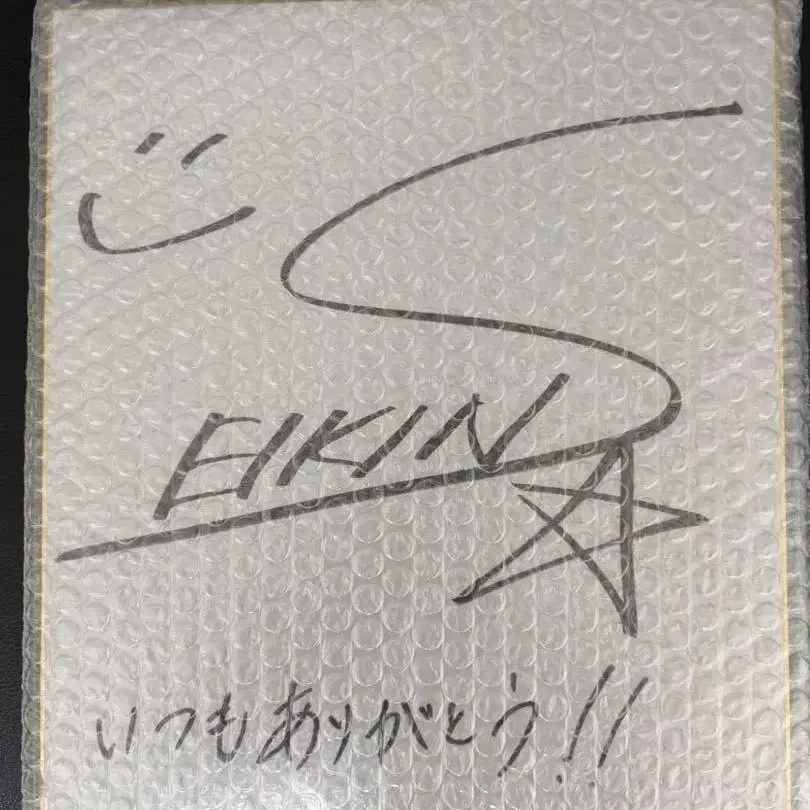 SEIKIN
いつもありがとう!!